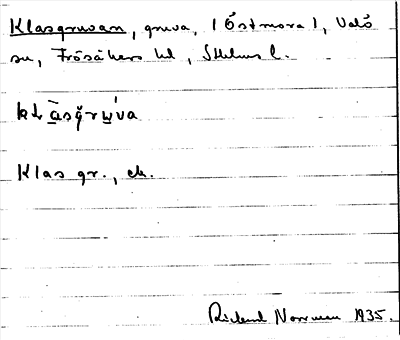 Klasgruvan, gruva, (Östmora), Valö
sn, Frösåkers hd, Sthlms l.
Klas gr., ek.
Rickard Norrman 1935.